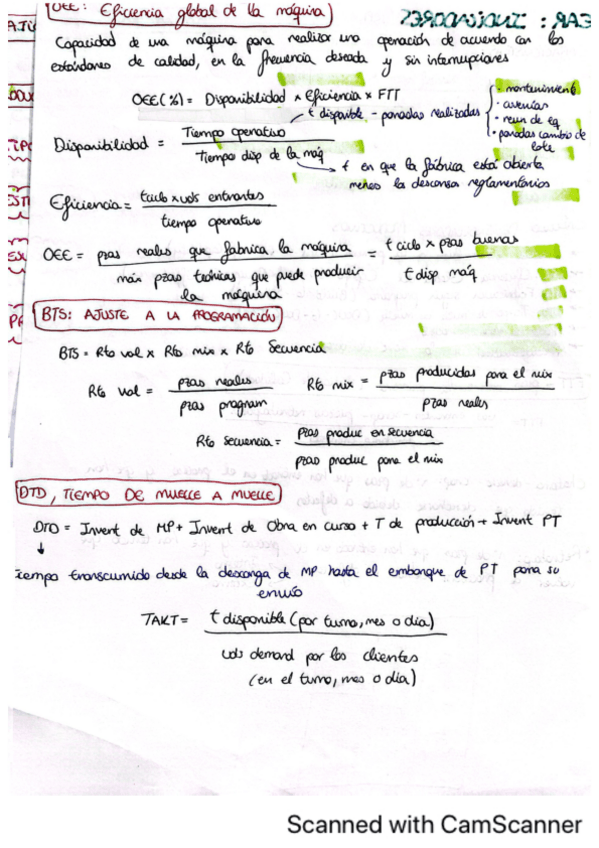 OEE: Eficiencia global de la máquina
Capacidad de una máquina para realizar una operación de acuerdo con los
estándares de calidad, en la frecuencia deseada y sin interrupciones
OEE(%) = Disponibilidad x Eficiencia x FTT
t disponible - paradas realizadas
· mantenimiento
· averías
· reun de eq
· paradas cambio de
lote
Disponibilidad = Tiempo operativo
Tiempo disp de la máq
t en que la fábrica está abierta
menos la descansos reglamentarios
Eficiencia = t ciclo x uds entrantes
tiempo operativo
OEE = pzas reales que fabrica la máquina = t ciclo x pzas buenas
máx pzas teóricas que puede producir t disp máq
la máquina
BTS: AJUSTE A LA PROGRAMACIÓN
BTS = Rto vol x Rto mix x Rto Secuencia
Rto vol = pzas reales
pzas program
Rto mix = pzas producidas para el mix
pzas reales
Rto secuencia = pzas produc en secuencia
pzas produc para el mix
DTD, TIEMPO DE MUELLE A MUELLE
DTD = Invent de MP + Invent de Obra en curso + T de producción + Invent PT
tiempo transcurrido desde la descarga de MP hasta el embarque de PT para su
envío
TAKT = t disponible (por turno, mes o día)
uds demand por los clientes
(en el turno, mes o día)
Scanned with CamScanner